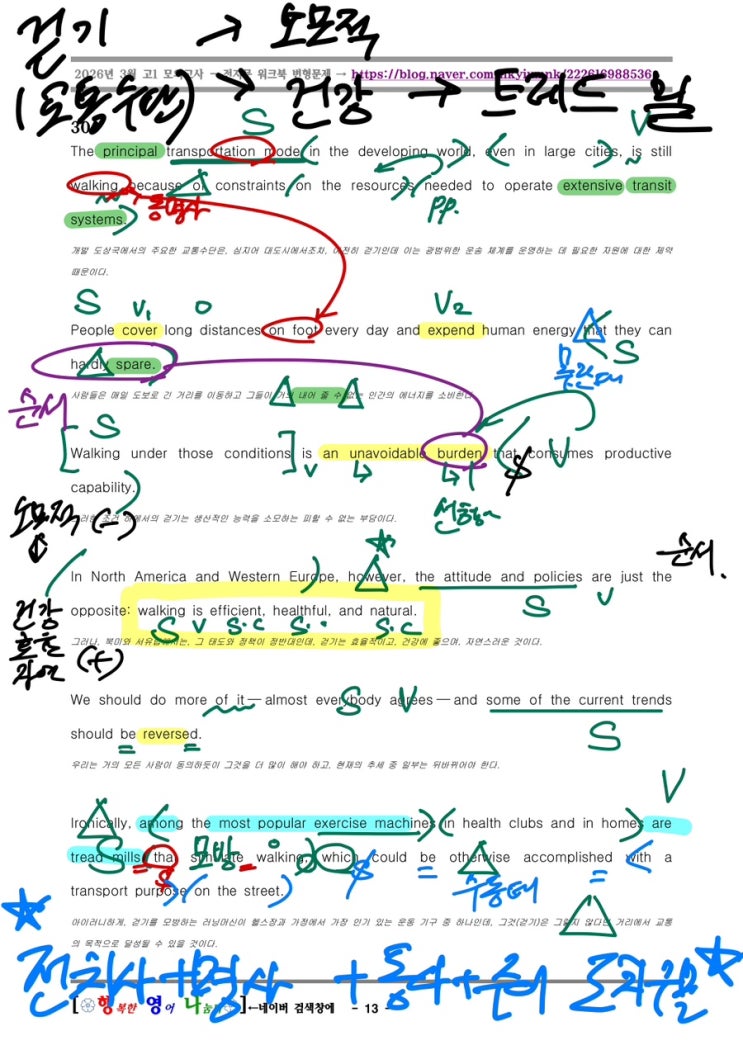 걷기 → 소모적
2026년 3월 고1 모의고사 - 전지문 워크북 변형문제 → https://blog.naver.com/hkyimnk/222616988536
(교통수단) → 건강 → 트레드 밀
30
S V
The principal transportation mode in the developing world, even in large cities, is still
walking because of constraints on the resources needed to operate extensive transit
동명사 pp.
systems.
개발 도상국에서의 주요한 교통수단은, 심지어 대도시에서조차, 여전히 걷기인데 이는 광범위한 운송 체계를 운영하는 데 필요한 자원에 대한 제약
때문이다.
S V₁ O V₂
People cover long distances on foot every day and expend human energy that they can
S
hardly spare.
목관대
사람들은 매일 도보로 긴 거리를 이동하고 그들이 거의 내어 줄 수 없는 인간의 에너지를 소비한다.
순서
S
Walking under those conditions is an unavoidable burden that consumes productive
V V
capability.
선행사
이러한 조건 하에서의 걷기는 생산적인 능력을 소모하는 피할 수 없는 부담이다.
소모적 (-)
순서.
In North America and Western Europe, however, the attitude and policies are just the
S V
opposite: walking is efficient, healthful, and natural.
S V S.C S.C
건강
효율
자연 (+)
그러나, 북미와 서유럽에서는, 그 태도와 정책이 정반대인데, 걷기는 효율적이고, 건강에 좋으며, 자연스러운 것이다.
We should do more of it — almost everybody agrees — and some of the current trends
S V
should be reversed.
S
우리는 거의 모든 사람이 동의하듯이 그것을 더 많이 해야 하고, 현재의 추세 중 일부는 뒤바뀌어야 한다.
V
Ironically, among the most popular exercise machines in health clubs and in homes are
tread mills that simulate walking, which could be otherwise accomplished with a
S 모방 수동태
transport purpose on the street.
아이러니하게, 걷기를 모방하는 러닝머신이 헬스장과 가정에서 가장 인기 있는 운동 기구 중 하나인데, 그것(걷기)은 그렇지 않다면 거리에서 교통
의 목적으로 달성될 수 있을 것이다.
전치사+명사 +동사+주어 도치구문
[행복한 영어 나눔터]←네이버 검색창에 - 13 -